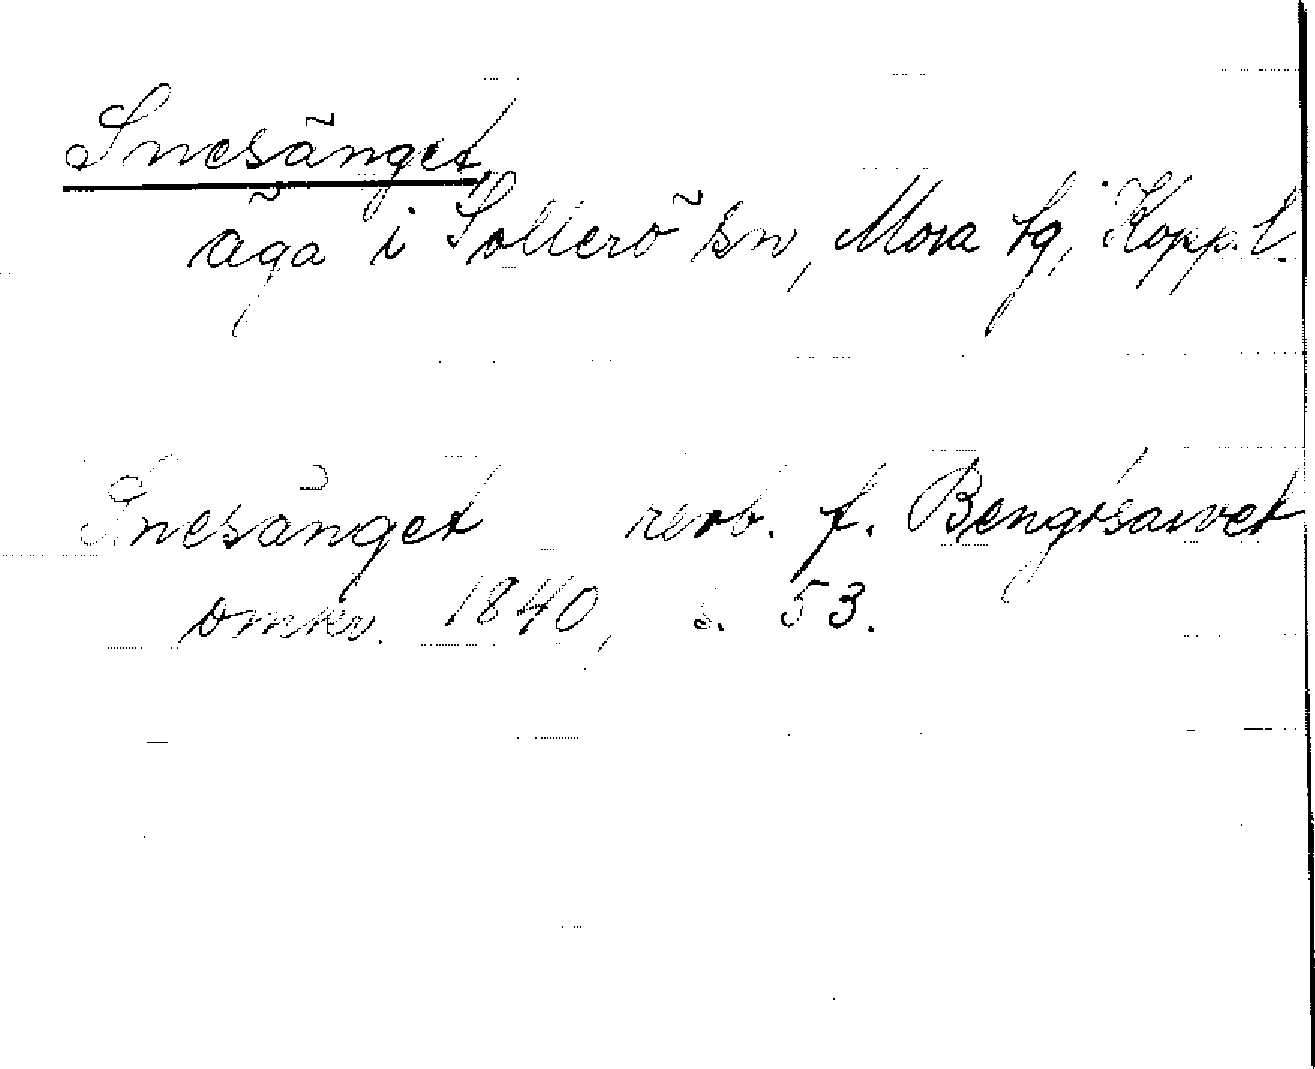 Snesänget,
äga i Sollerö sn, Mora tg, Kopp. l.
Snesänget revb. f. Bengtsarvet
omkr. 1840, s. 53.